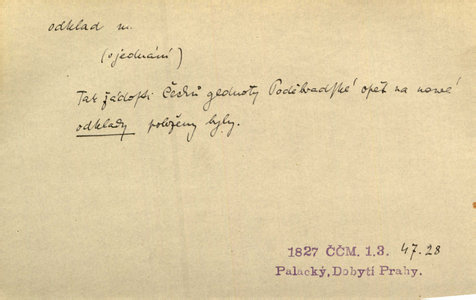 odklad m.
(o jednání)
Tak žádosti Čechů gednoty Poděbradské opět na nowé
odklady položeny byly.
1827 ČČM. 1.3. 47.28
Palacký, Dobytí Prahy.